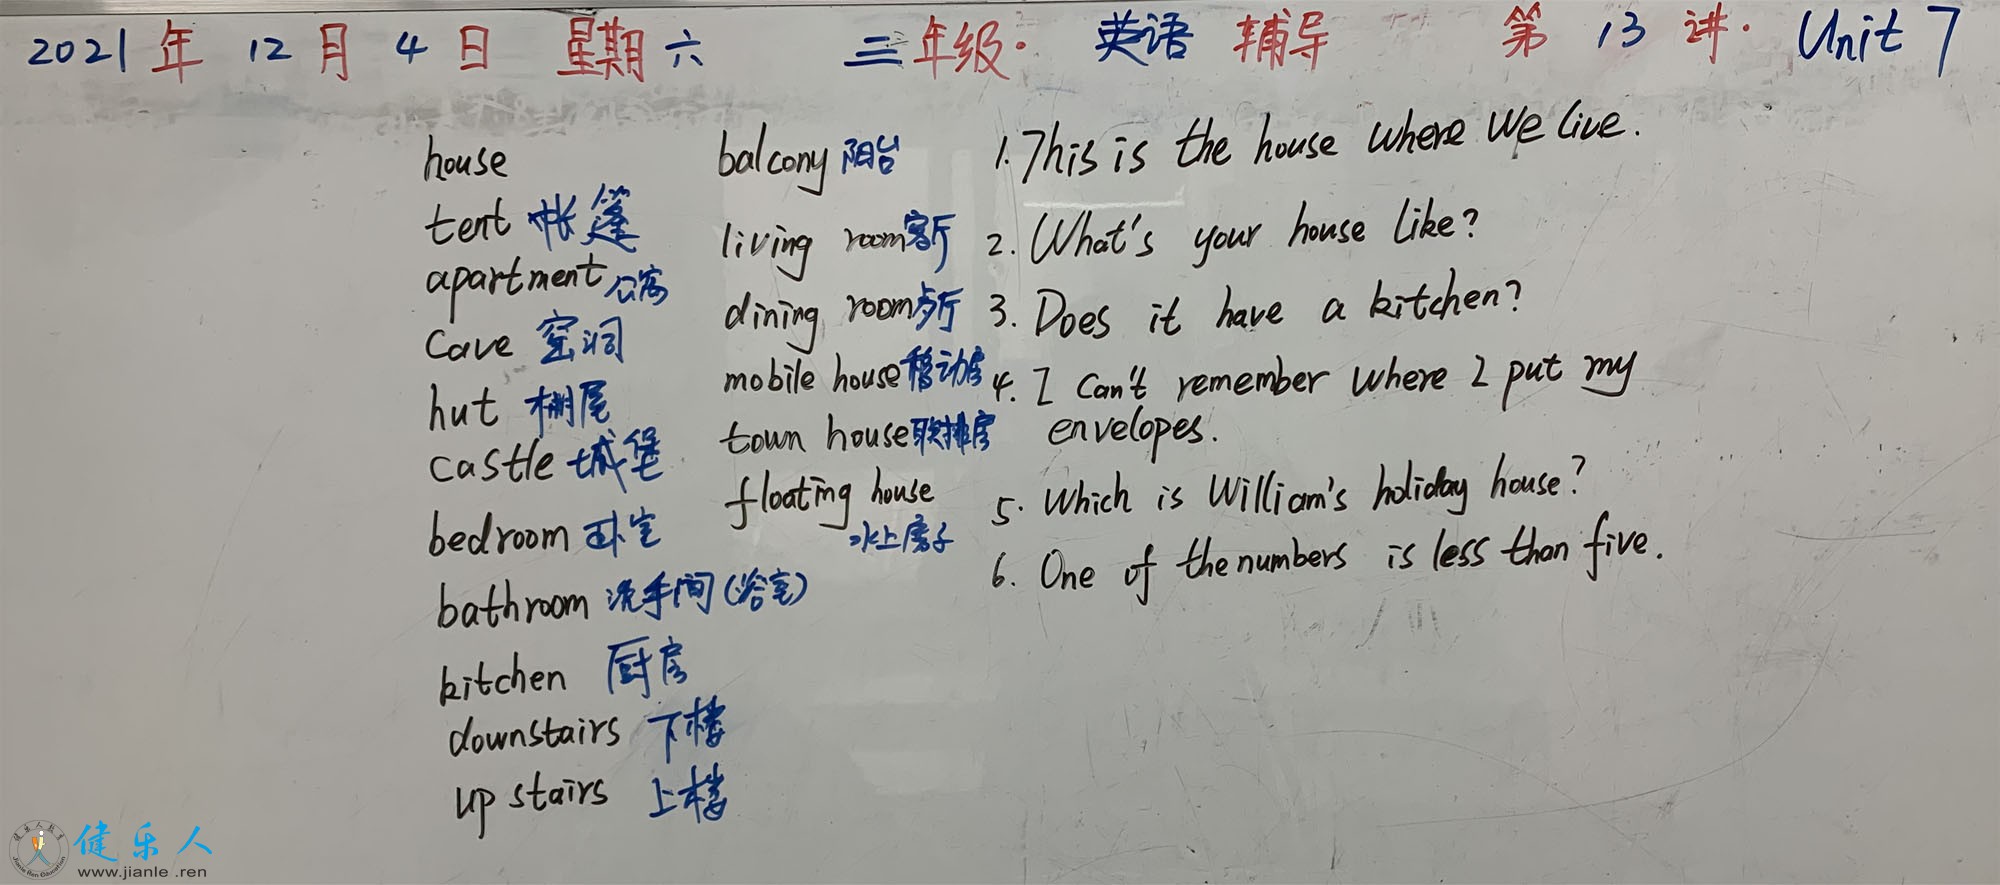 2021年 12月 4日 星期六 三年级· 英语 辅导 第 13 讲· Unit 7
house
tent 帐篷
apartment 公寓
cave 窑洞
hut 棚屋
castle 城堡
bedroom 卧室
bathroom 洗手间(浴室)
kitchen 厨房
downstairs 下楼
up stairs 上楼
balcony 阳台
living room 客厅
dining room 歺厅
mobile house 移动房
town house 联排房
floating house
水上房子
1. This is the house where we live.
2. What's your house like?
3. Does it have a kitchen?
4. I can't remember where I put my
envelopes.
5. Which is William's holiday house?
6. One of the numbers is less than five.
健乐人
www.jianle.ren